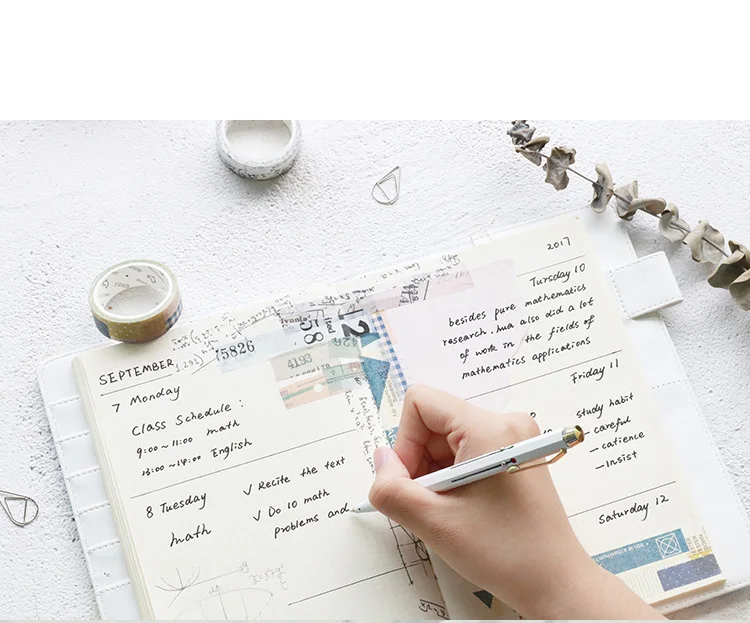 SEPTEMBER
7 Monday
Class Schedule :
9:00 ~ 11:00 math
13:00 ~ 14:00 English
8 Tuesday
math
√ Recite the text
√ Do 10 math
problems and
75826
58
12
4193
2017
Tursday 10
besides pure mathematics
research. hua also did a lot
of work in the fields of
mathematics applications
Friday 11
study habit
– careful
– catience
– Insist
Saturday 12